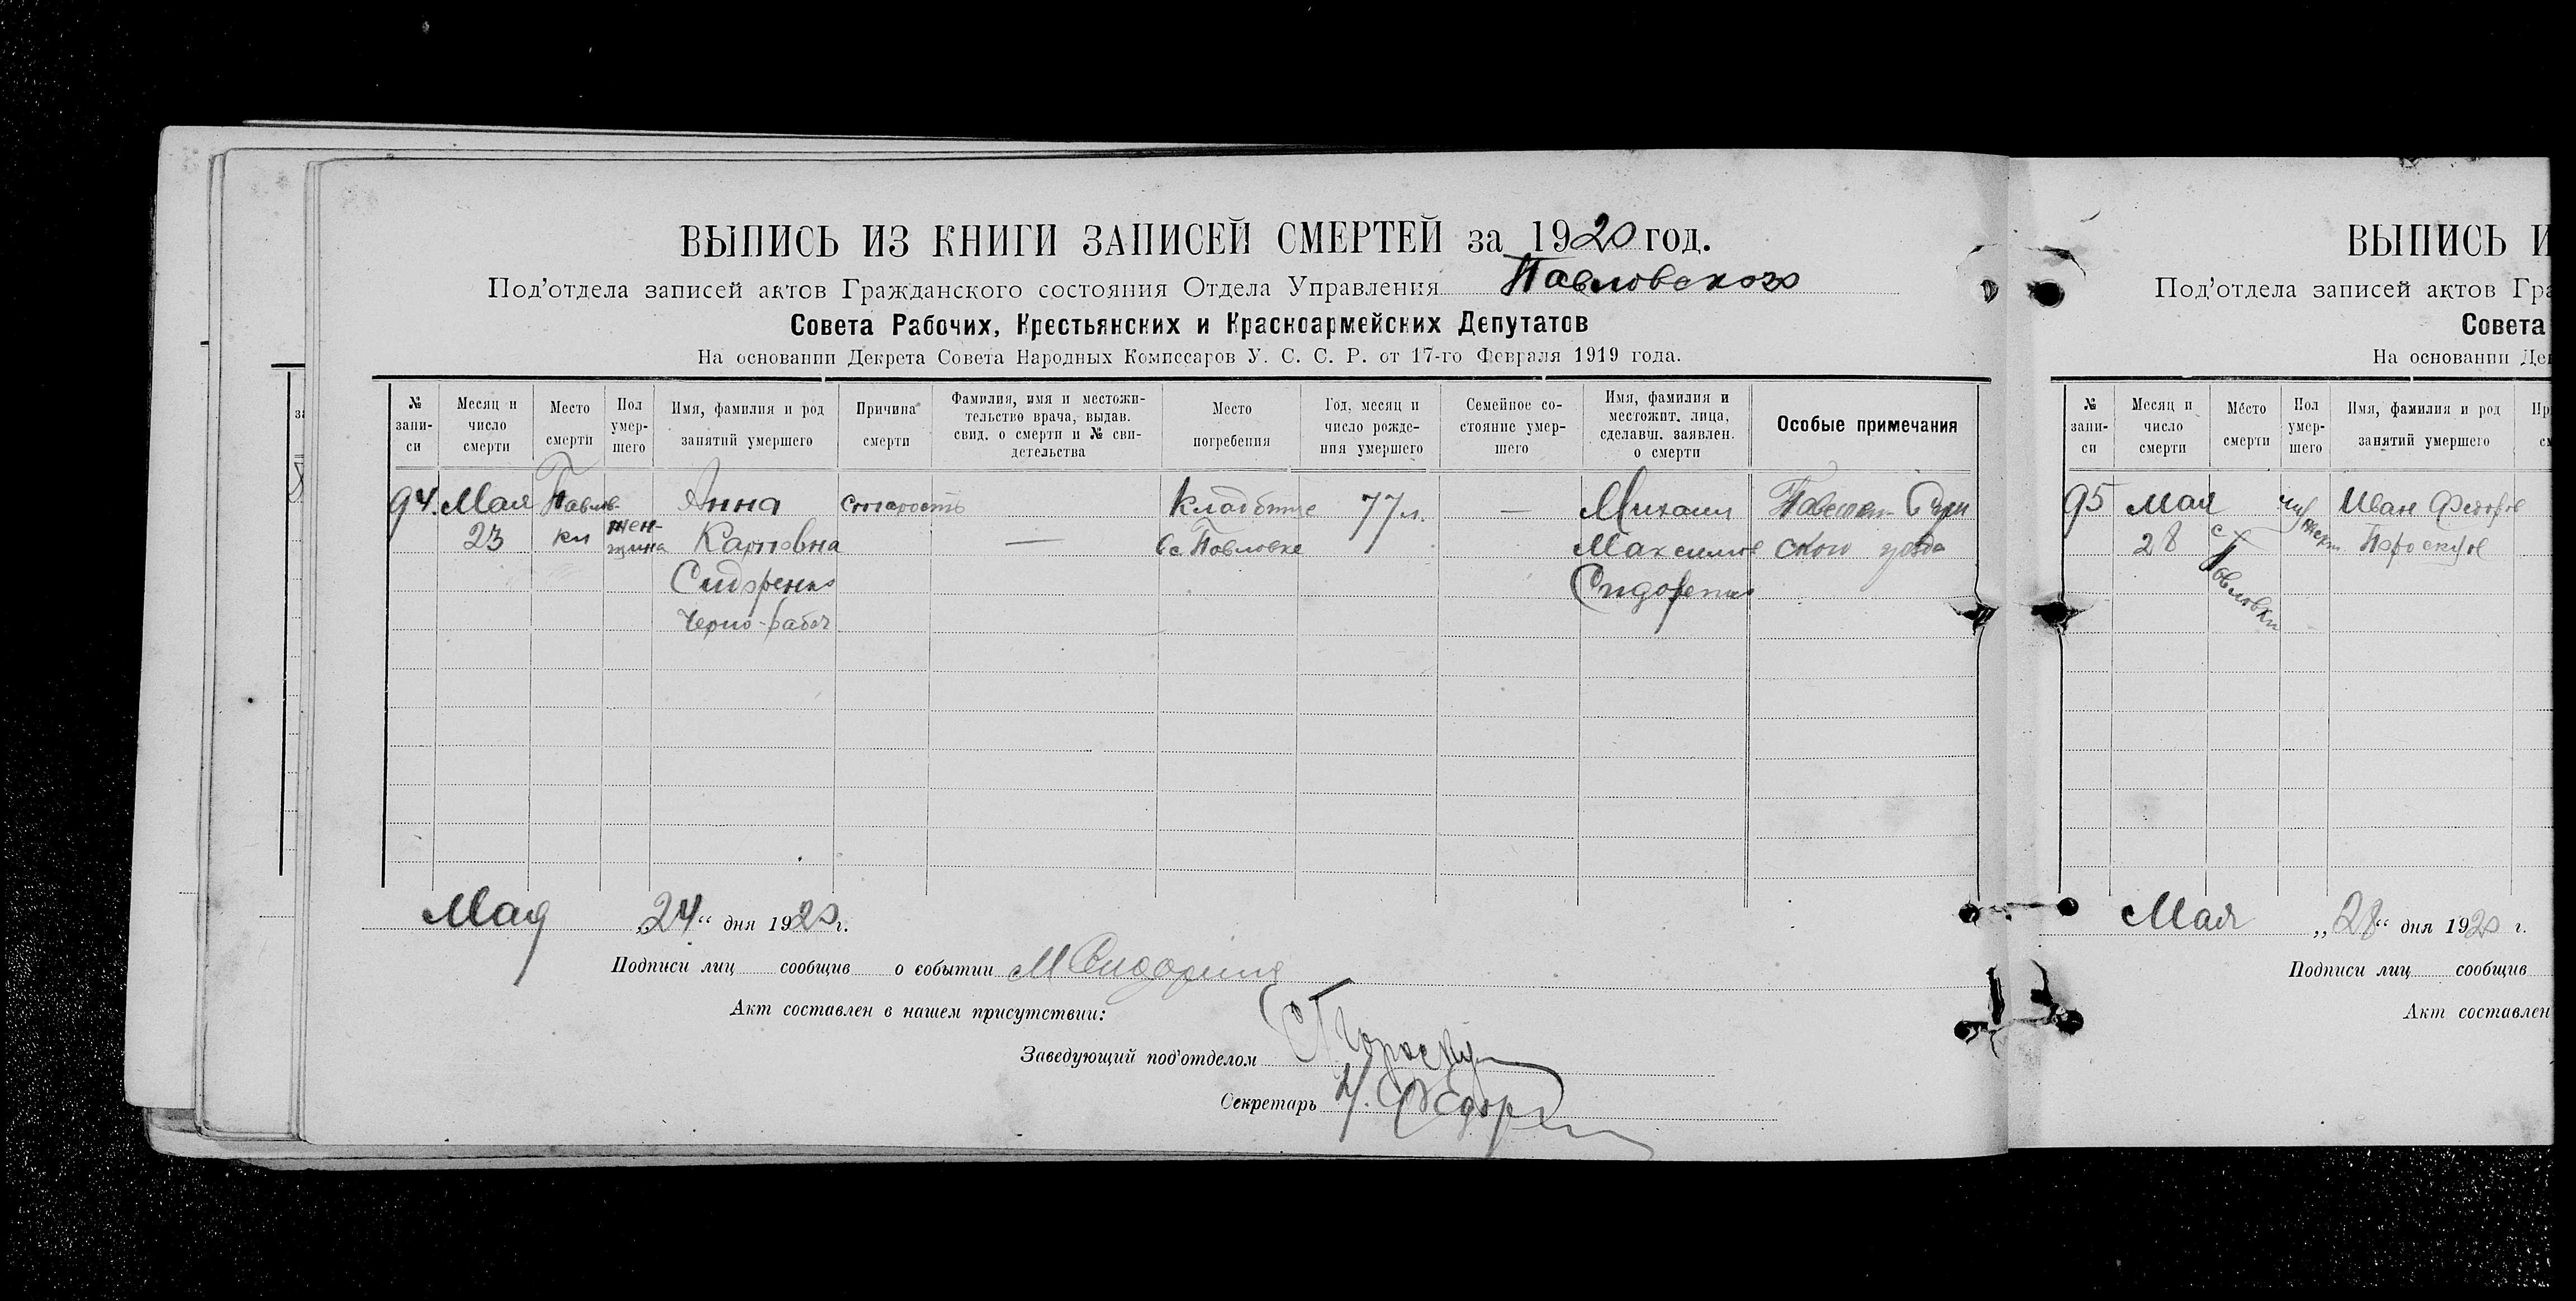 ВЫПИСЬ ИЗ КНИГИ ЗАПИСЕЙ СМЕРТЕЙ за 1920 год.
Под'отдела записей актов Гражданского состояния Отдела Управления Павловского
Совета Рабочих, Крестьянских и Красноармейских Депутатов
На основании Декрета Совета Народных Комиссаров У. С. С. Р. от 17-го Февраля 1919 года.
№ запи-си
Месяц и число смерти
Место смерти
Пол умер-шего
Имя, фамилия и род занятий умершего
Причина смерти
Фамилия, имя и местожи-тельство врача, выдав. свид. о смерти и № сви-детельства
Место погребения
Год, месяц и число рожде-ния умершего
Семейное со-стояние умер-шего
Имя, фамилия и местожит. лица, сделавш. заявлен. о смерти
Особые примечания
94. Мая Павлов- Анна старость Кладбище 77 л. — Михаил
23 ки жен-щина Карповна — Вс. Павловке Максимов ского уезда
Сидоренко Сидоренко
Черно-рабоч
Мая „24“ дня 1920 г.
Подписи лиц сообщив о событии М
Акт составлен в нашем присутствии:
Заведующий под'отделом
Секретарь
ВЫПИСЬ И
Под'отдела записей актов Гра
Совета
На основании Дек
№ запи-си
Месяц и число смерти
Место смерти
Пол умер-шего
Имя, фамилия и род занятий умершего
95 Мая Иван Федоров
28 с Павловки
Мая „28“ дня 1920 г.
Подписи лиц сообщив
Акт составлен